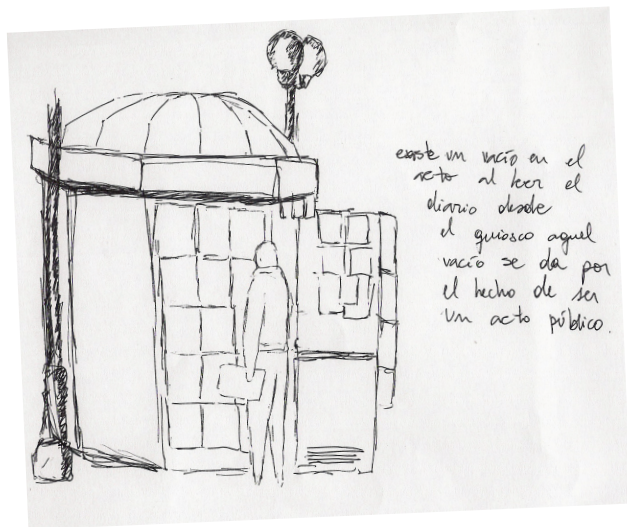 existe un vacío en el
acto al leer el
diario desde
el quiosco aquel
vacío se da por
el hecho de ser
un acto público.